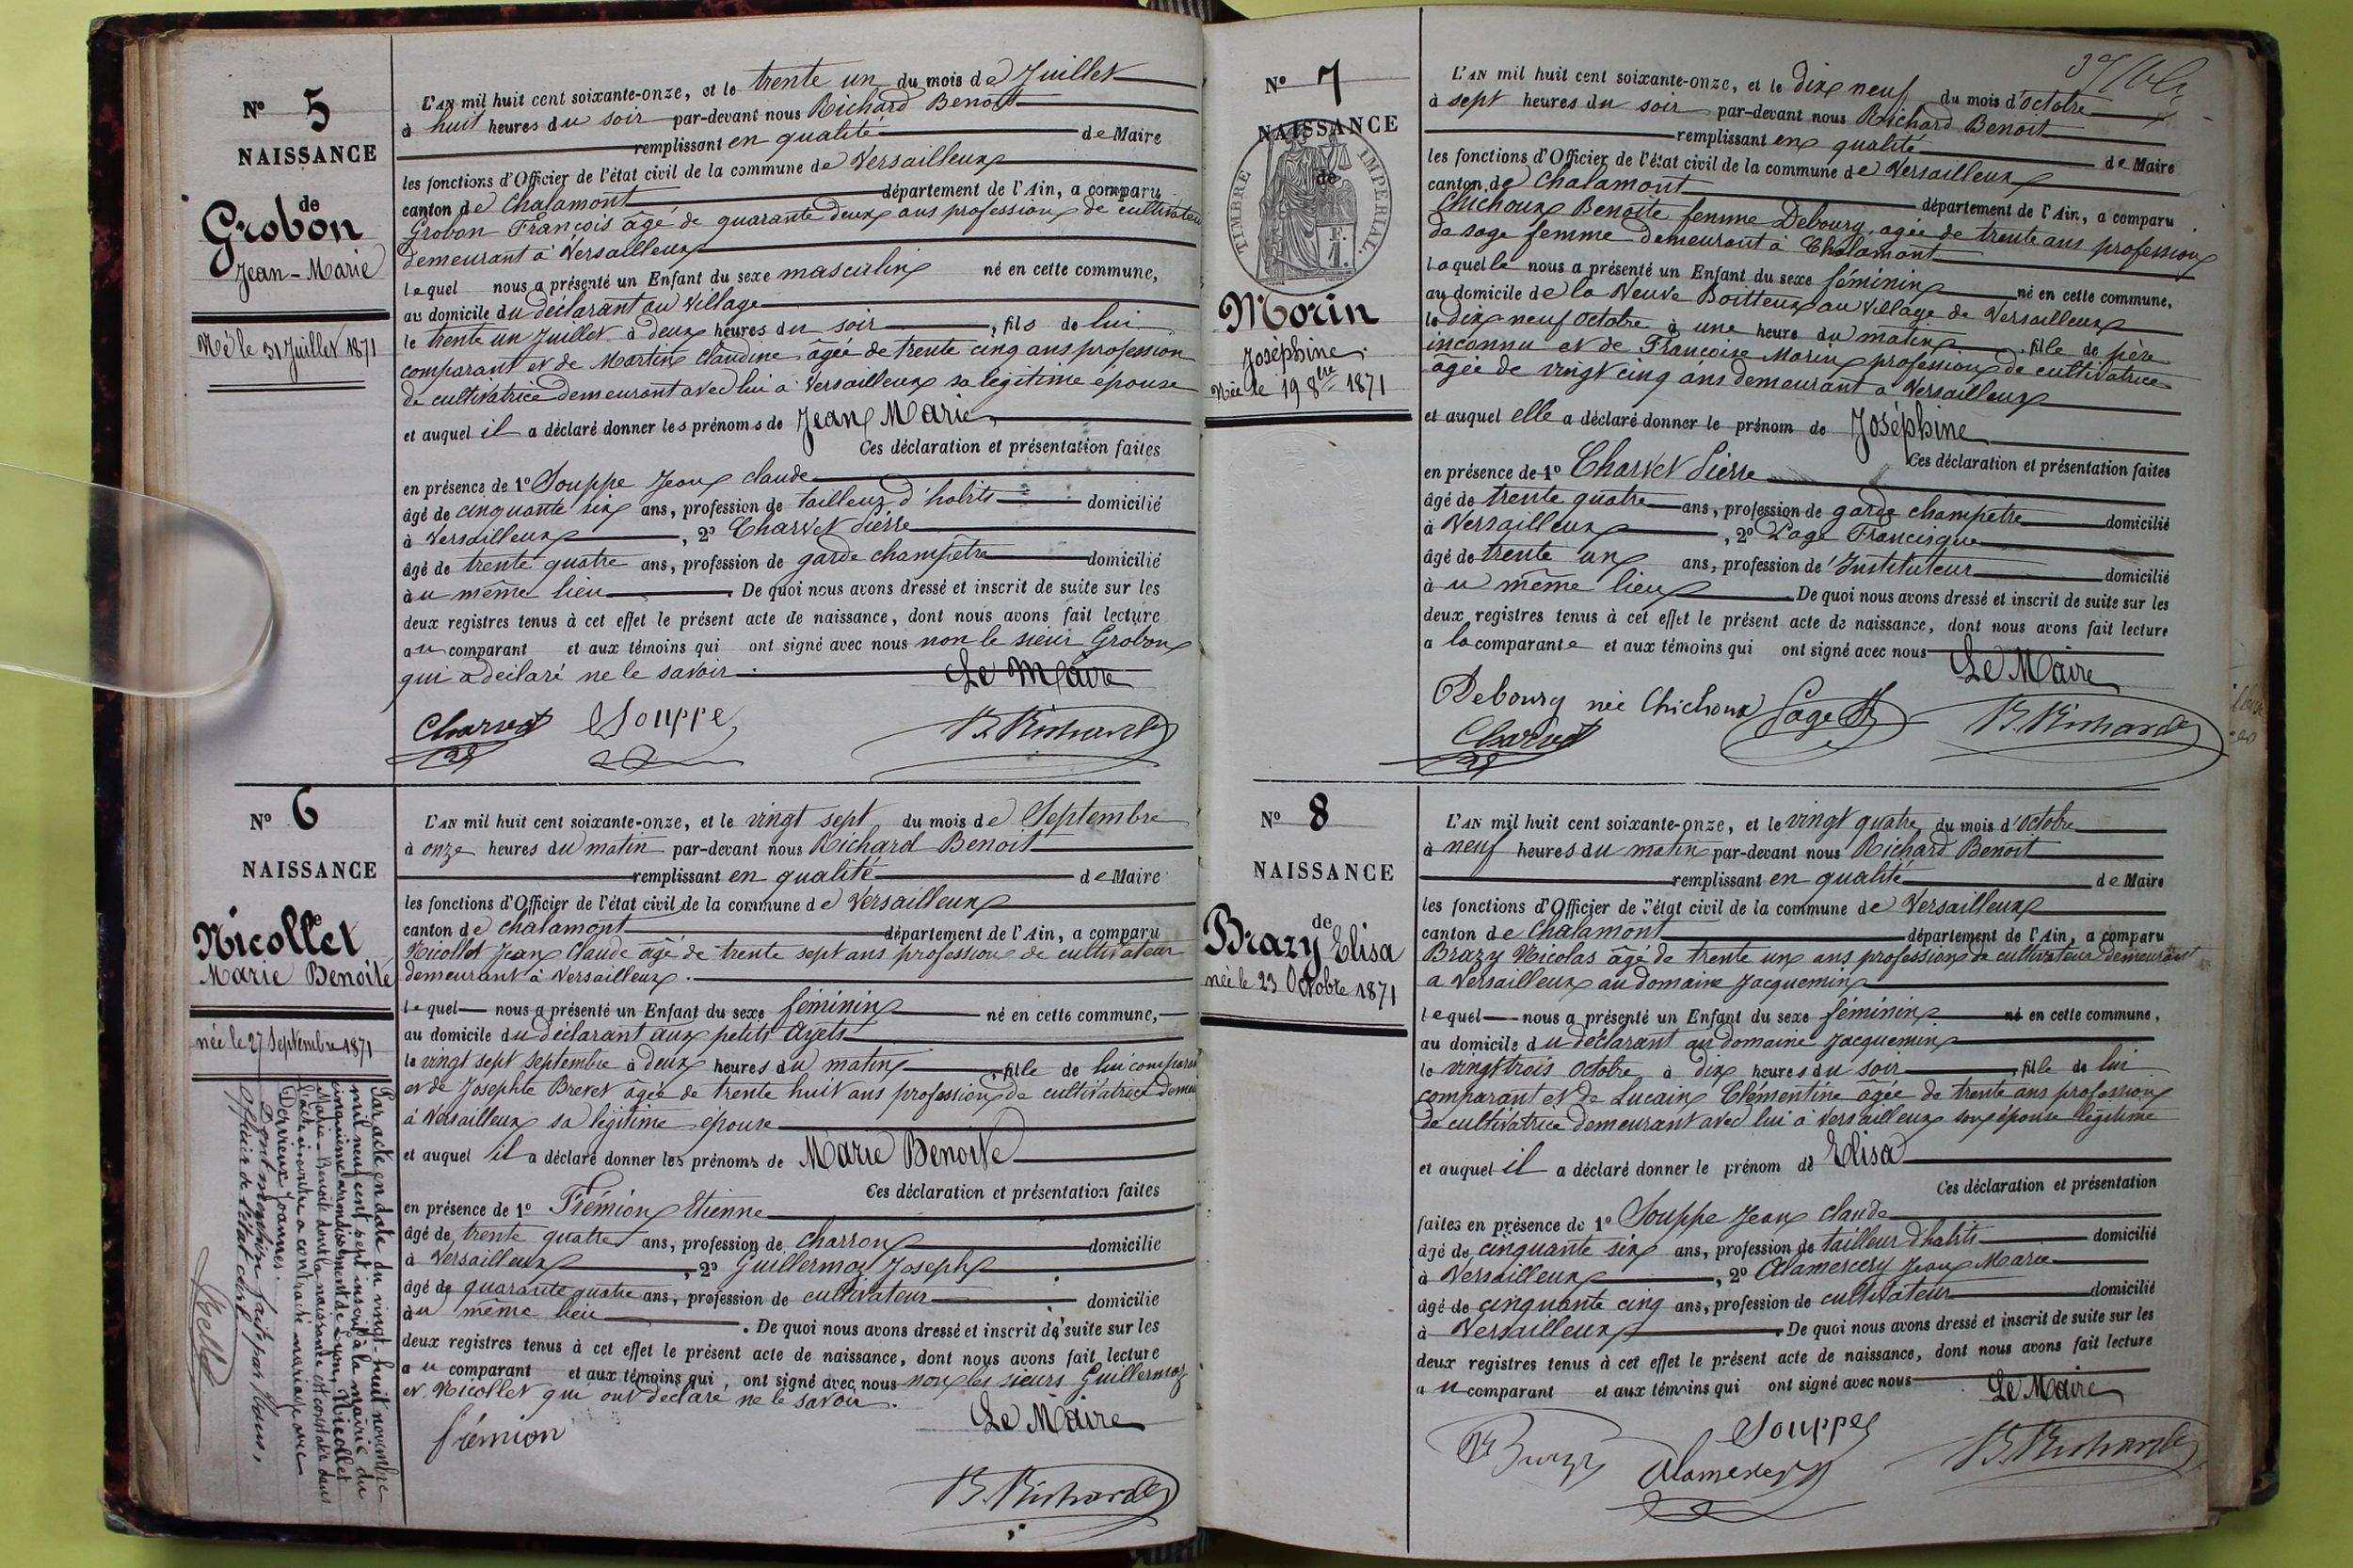 N° 5
NAISSANCE
de
Grobon
Jean-Marie
Né le 31 Juillet 1871
L'AN mil huit cent soixante-onze, et le trente un du mois de Juillet
à huit heures du soir par-devant nous Richard Benoit
remplissant en qualité de Maire
les fonctions d'Officier de l'état civil de la commune de Versailleux
canton de Chalamont département de l'Ain, a comparu
Grobon François âgé de quarante deux ans profession de cultivateur
demeurant à Versailleux
lequel nous a présenté un Enfant du sexe masculin né en cette commune,
au domicile du déclarant au village
le trente un Juillet à deux heures du soir, fils de lui
comparant et de Martin Claudine âgée de trente cinq ans profession
de cultivatrice demeurant avec lui à Versailleux sa légitime épouse
et auquel il a déclaré donner les prénoms de Jean Marie
Ces déclaration et présentation faites
en présence de 1° Souppe Jean claude
âgé de cinquante six ans, profession de tailleur d'habits domicilié
à Versailleux, 2° Charvet Pierre
âgé de trente quatre ans, profession de garde champêtre domicilié
au même lieu. De quoi nous avons dressé et inscrit de suite sur les
deux registres tenus à cet effet le présent acte de naissance, dont nous avons fait lecture
au comparant et aux témoins qui ont signé avec nous non le sieur Grobon
qui a déclaré ne le savoir.
Le Maire
Charvet Souppe B. Richard
N° 6
NAISSANCE
de
Nicollet
Marie Benoite
née le 27 Septembre 1871
Par acte en date du vingt-huit novembre
mil neuf cent sept inscrit à la mairie du
cinquième arrondissement de Lyon, Nicollet
Marie-Benoite dont la naissance est constatée dans
l'acte ci-contre a contracté mariage avec
Dervieux Joannès.
Dont mention faite par Nous,
Officier de l'état civil
L'AN mil huit cent soixante-onze, et le vingt sept du mois de Septembre
à onze heures du matin par-devant nous Richard Benoit
remplissant en qualité de Maire
les fonctions d'Officier de l'état civil de la commune de Versailleux
canton de Chalamont département de l'Ain, a comparu
Nicollet Jean Claude âgé de trente sept ans profession de cultivateur
demeurant à Versailleux.
lequel nous a présenté un Enfant du sexe féminin né en cette commune,
au domicile du déclarant aux petits Ayets
le vingt sept septembre à deux heures du matin, fille de lui comparant
et de Josephte Brevet âgée de trente huit ans profession de cultivatrice demeu
à Versailleux sa légitime épouse
et auquel il a déclaré donner les prénoms de Marie Benoite
Ces déclaration et présentation faites
en présence de 1° Frémion Etienne
âgé de trente quatre ans, profession de charron domicilié
à Versailleux, 2° Guillermoz Joseph
âgé de quarante quatre ans, profession de cultivateur domicilié
au même lieu. De quoi nous avons dressé et inscrit de suite sur les
deux registres tenus à cet effet le présent acte de naissance, dont nous avons fait lecture
au comparant et aux témoins qui ont signé avec nous non les sieurs Guillermoz
et Nicollet qui ont déclaré ne le savoir.
Le Maire
frémion
B. Richard
N° 7
NAISSANCE
de
TIMBRE IMPERIAL
Morin
Joséphine
Née le 19 8bre 1871
L'AN mil huit cent soixante-onze, et le dix neuf du mois d'octobre
à sept heures du soir par-devant nous Richard Benoit
remplissant en qualité de Maire
les fonctions d'Officier de l'état civil de la commune de Versailleux
canton de Chalamont département de l'Ain, a comparu
Chichoux Benoite femme Debourg, agée de trente ans profession
de sage femme demeurant à Chalamont
laquelle nous a présenté un Enfant du sexe féminin né en cette commune,
au domicile de la Veuve Boitteux au village de Versailleux
le dix neuf octobre à une heure du matin, fille de père
inconnu et de Françoise Morin profession de cultivatrice
âgée de vingt cinq ans demeurant a Versailleux
et auquel elle a déclaré donner le prénom de Joséphine
Ces déclaration et présentation faites
en présence de 1° Charvet Pierre
âgé de trente quatre ans, profession de garde champetre domicilié
à Versailleux, 2° Page Francisque
âgé de trente un ans, profession de Instituteur domicilié
au même lieu. De quoi nous avons dressé et inscrit de suite sur les
deux registres tenus à cet effet le présent acte de naissance, dont nous avons fait lecture
a la comparante et aux témoins qui ont signé avec nous
Le Maire
Debourg née Chichoux Page B. Richard
Charvet
N° 8
NAISSANCE
de
Brazy Elisa
née le 23 Octobre 1871
L'AN mil huit cent soixante-onze, et le vingt quatre du mois d'octobre
à neuf heures du matin par-devant nous Richard Benoit
remplissant en qualité de Maire
les fonctions d'Officier de l'état civil de la commune de Versailleux
canton de Chalamont département de l'Ain, a comparu
Brazy Nicolas âgé de trente un ans profession de cultivateur demeurant
a Versailleux au domaine Jacquemin
lequel nous a présenté un Enfant du sexe féminin né en cette commune,
au domicile du déclarant au domaine Jacquemin
le vingt trois octobre à dix heures du soir, fille de lui
comparant et de Lucain Clémentine âgée de trente ans profession
de cultivatrice demeurant avec lui à Versailleux son épouse légitime
et auquel il a déclaré donner le prénom de Elisa
Ces déclaration et présentation
faites en présence de 1° Souppe Jean claude
âgé de cinquante six ans, profession de tailleur d'habits domicilié
à Versailleux, 2° Alamercery Jean Marie
âgé de cinquante cinq ans, profession de cultivateur domicilié
à Versailleux. De quoi nous avons dressé et inscrit de suite sur les
deux registres tenus à cet effet le présent acte de naissance, dont nous avons fait lecture
au comparant et aux témoins qui ont signé avec nous
Le Maire
Souppe
Brazy Alamercery B. Richard